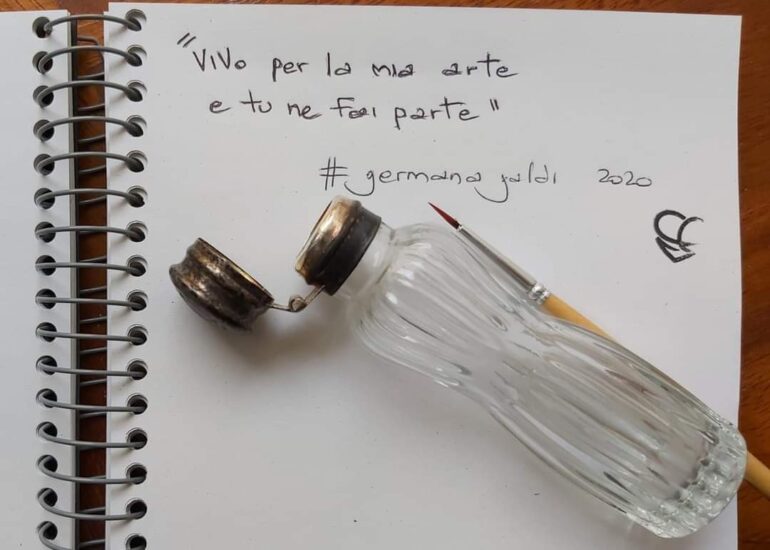 "Vivo per la mia arte
e tu ne fai parte"
#germana galdi 2020